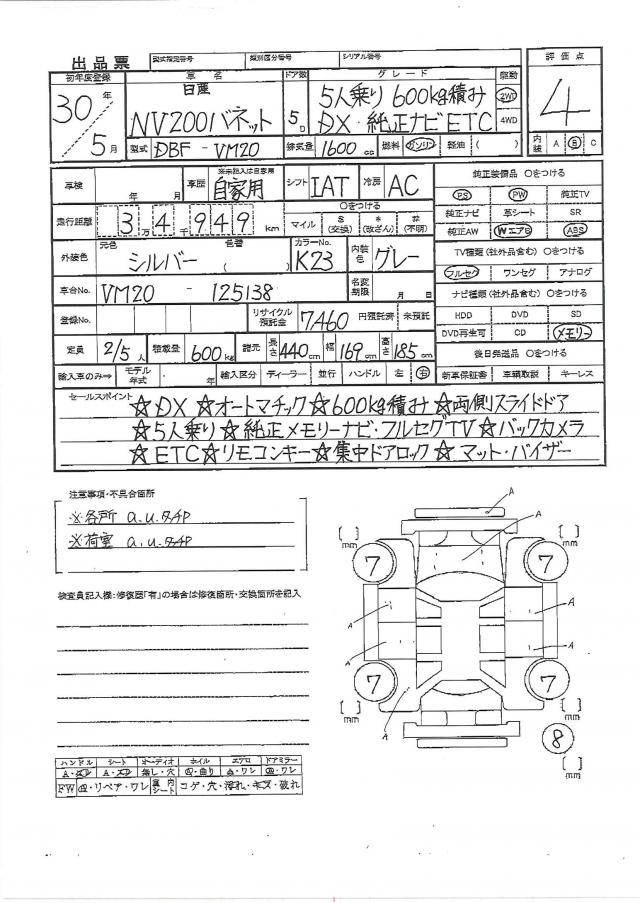 出品票 型式指定番号 類別区分番号 シリアル番号
初年度登録 車名 ドア数 グレード 駆動 評価点
30年 5月 日産 NV200バネット 5D 5人乗り 600kg積み DX・純正ナビ ETC 2WD 4WD 4
型式 DBF-VM20 排気量 1600cc 燃料 ガソリン・軽油( ) 内装 A B C
車検 年 月 車歴 ※未記入は自家用 自家用 シフト IAT 冷房 AC
走行距離 3万4千949km マイル ○をつける $(交換) *(改ざん) #(不明)
外装色 元色 シルバー 色番 ( ) カラーNo. K23 内装色 グレー
車台No. VM20 - 125138 名変期限 月 日
登録No. リサイクル預託金 7,460 円預託済 未預託
定員 2/5人 積載量 600kg 諸元 長さ 440cm 幅 169cm 高さ 185cm
輸入車のみ⇒ モデル年式 ・ 年 輸入区分 ディーラー 並行 ハンドル 左 右
純正装備品 ○をつける
PS PW 純正TV
純正ナビ 革シート SR
純正AW WエアB ABS
TV種類(社外品含む) ○をつける
フルセグ ワンセグ アナログ
ナビ種類(社外品含む) ○をつける
HDD DVD SD
DVD再生可 CD メモリー
後日発送品 ○をつける
新車保証書 車輌取説 キーレス
セールスポイント ☆DX ☆オートマチック ☆600kg積み ☆両側スライドドア
☆5人乗り ☆純正メモリーナビ・フルセグTV ☆バックカメラ
☆ETC ☆リモコンキー ☆集中ドアロック ☆マット・バイザー
注意事項・不具合箇所
※各所 a.u.
※荷室 a.u.
検査員記入欄:修復歴「有」の場合は修復箇所・交換箇所を記入
A
[ ] mm [ ] mm
7 7
A
A A
A A
7 7
A
[ ] mm [ ] mm
8
[ ] mm
ハンドル シート オーディオ ホイル エアロ ドアミラー
A・ A・ 無し・穴 ・曲り ・ワレ ・ワレ
FW ・リペア・ワレ 室内シート コゲ・穴・汚れ・キズ・破れ